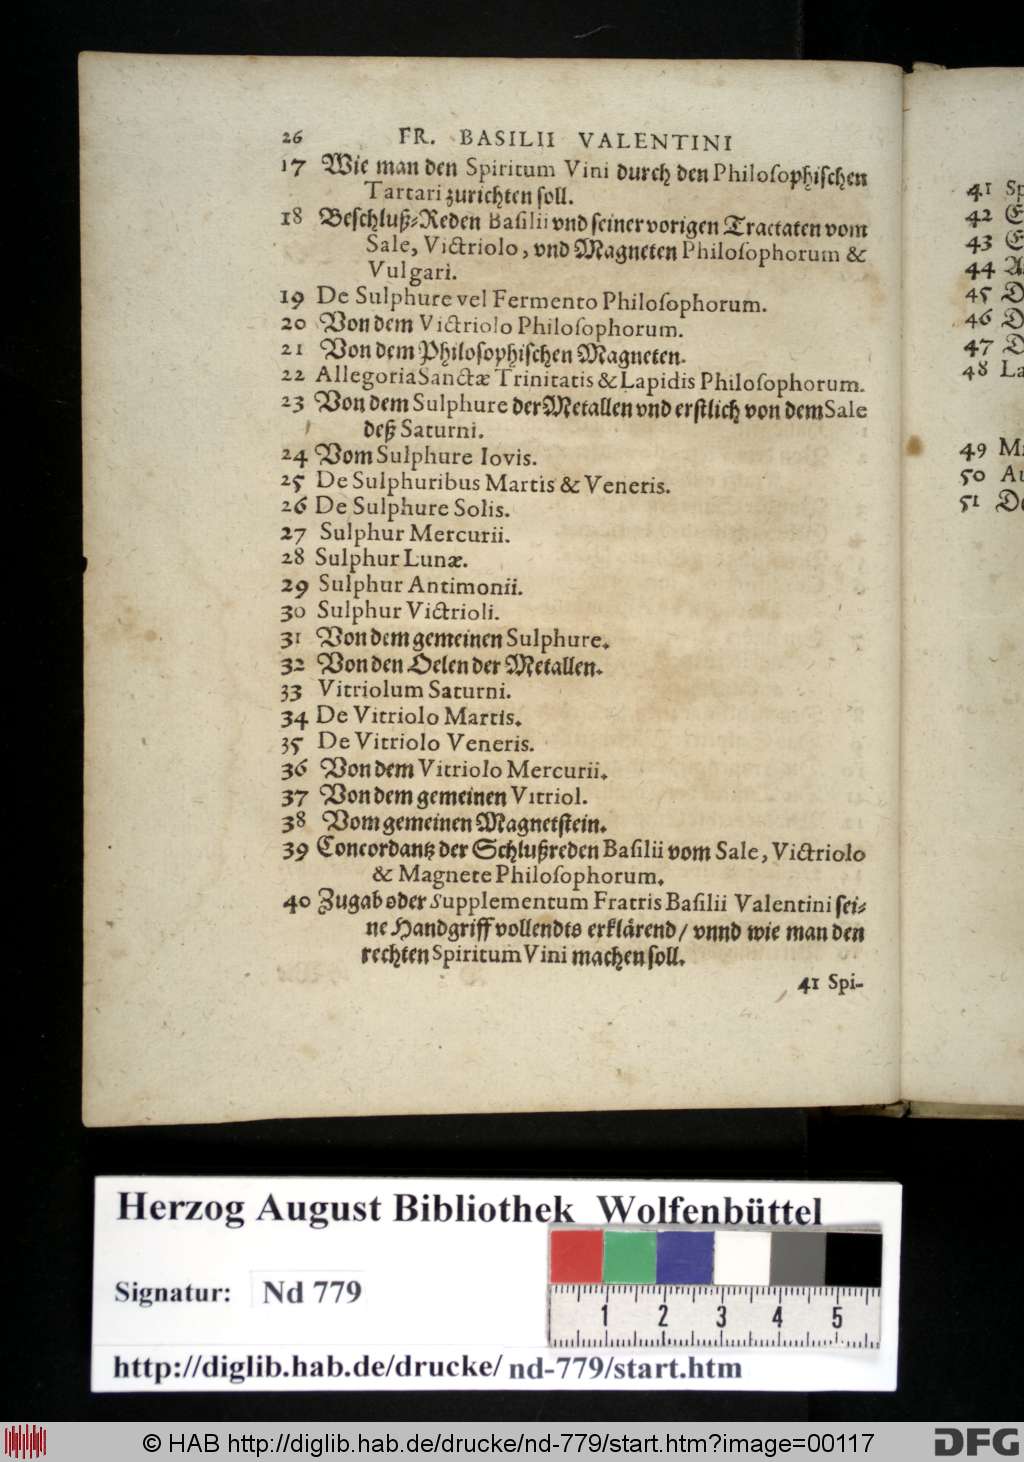 26 FR. BASILII VALENTINI
17 Wie man den Spiritum Vini durch den Philosophischen
Tartari zurichten soll.
18 Beschluß-Reden Basilii vnd seiner vorigen Tractaten vom
Sale, Victriolo, vnd Magneten Philosophorum &
Vulgari.
19 De Sulphure vel Fermento Philosophorum.
20 Von dem Victriolo Philosophorum.
21 Von dem Philosophischen Magneten.
22 Allegoria Sanctæ Trinitatis & Lapidis Philosophorum.
23 Von dem Sulphure der Metallen vnd erstlich von dem Sale
deß Saturni.
24 Vom Sulphure Iovis.
25 De Sulphuribus Martis & Veneris.
26 De Sulphure Solis.
27 Sulphur Mercurii.
28 Sulphur Lunæ.
29 Sulphur Antimonii.
30 Sulphur Victrioli.
31 Von dem gemeinen Sulphure.
32 Von den Oelen der Metallen.
33 Vitriolum Saturni.
34 De Vitriolo Martis.
35 De Vitriolo Veneris.
36 Von dem Vitriolo Mercurii.
37 Von dem gemeinen Vitriol.
38 Vom gemeinen Magnetstein.
39 Concordantz der Schlußreden Basilii vom Sale, Victriolo
& Magnete Philosophorum.
40 Zugab oder Supplementum Fratris Basilii Valentini sei-
ne Handgriff vollendts erklärend / vnnd wie man den
rechten Spiritum Vini machen soll.
41 Spi-
41 Sp
42
43
44
45 D
46 D
47 D
48 La
49 M
50 Au
51 De
Herzog August Bibliothek Wolfenbüttel
Signatur: Nd 779
1 2 3 4 5
http://diglib.hab.de/drucke/ nd-779/start.htm
© HAB http://diglib.hab.de/drucke/nd-779/start.htm?image=00117
DFG